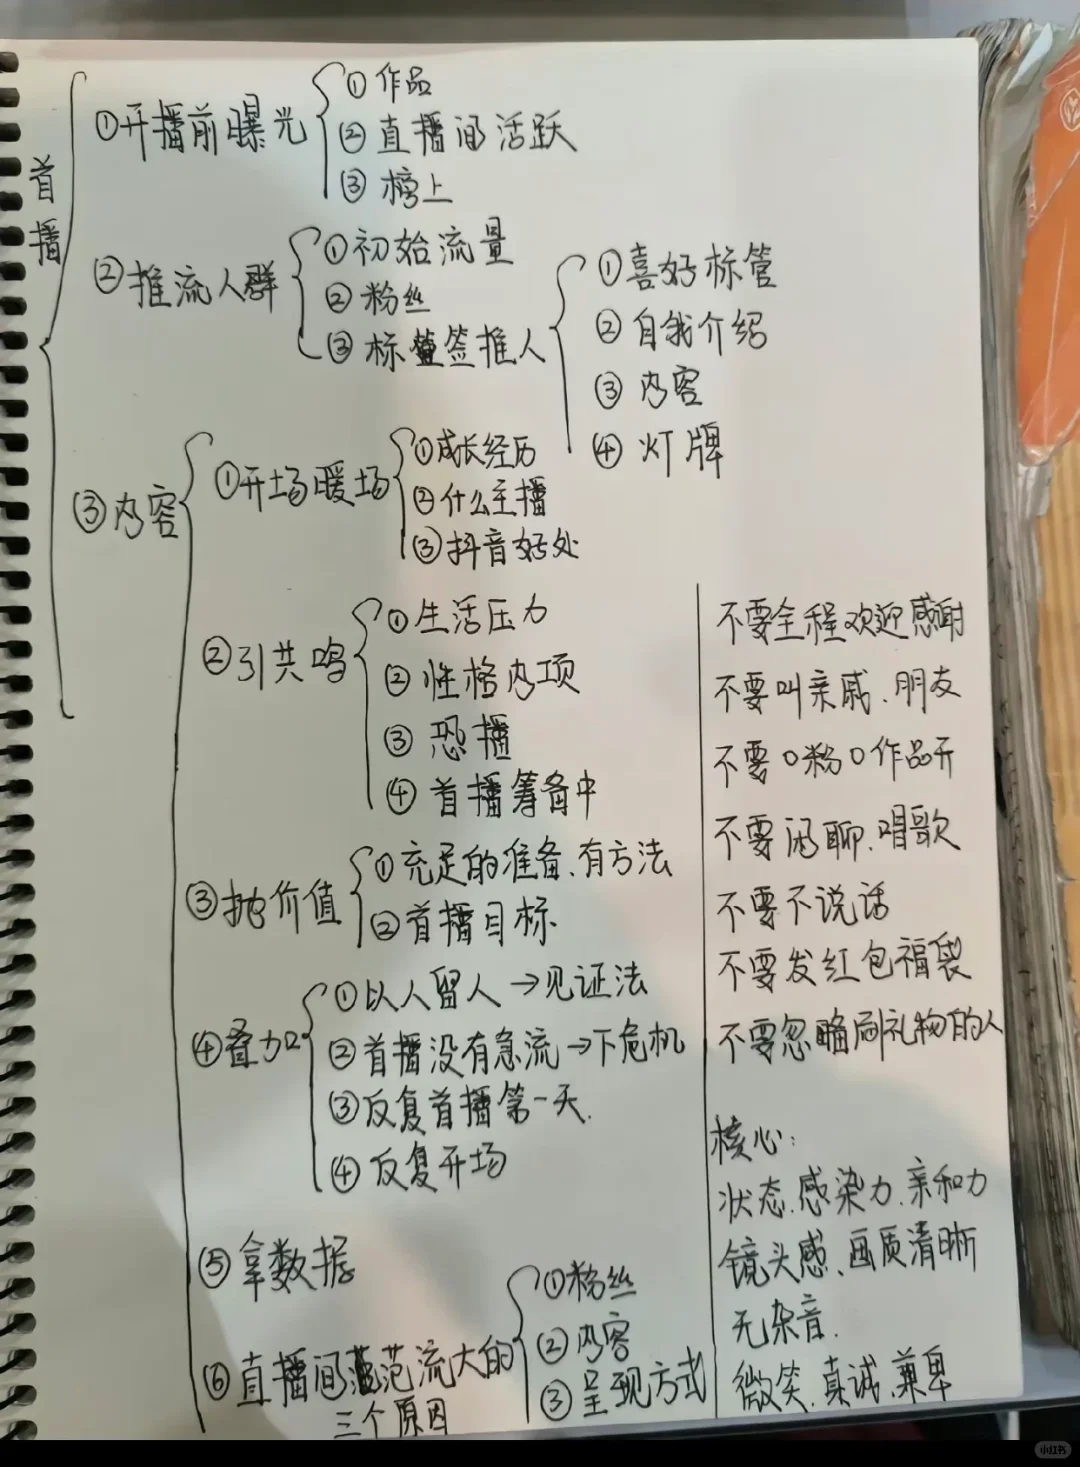 首播
①开播前曝光
①作品
②直播间活跃
③榜上
②推流人群
①初始流量
②粉丝
③标签推人
①喜好标管
②自我介绍
③内容
④灯牌
③内容
①开场暖场
①成长经历
②什么主播
③抖音好处
②引共鸣
①生活压力
②性格内项
③恐播
④首播筹备中
③抛价值
①充足的准备、有方法
②首播目标
④叠加
①以人留人→见证法
②首播没有急流→下危机
③反复首播第一天.
④反复开场
⑤拿数据
⑥直播间范流大的
三个原因
①粉丝
②内容
③呈现方式
不要全程欢迎感谢
不要叫亲戚、朋友
不要0粉0作品开
不要闲聊、唱歌
不要不说话
不要发红包福袋
不要忽略刷礼物的人
核心:
状态、感染力、亲和力
镜头感、画质清晰
无杂音.
微笑、真诚、兼卑
小红书